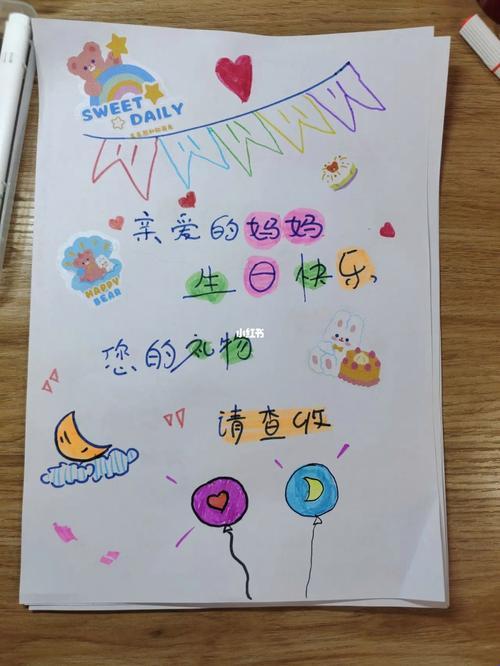 SWEET
DAILY
亲爱的妈妈
生日快乐
HAPPY
BEAR
小红书
您的礼物
请查收